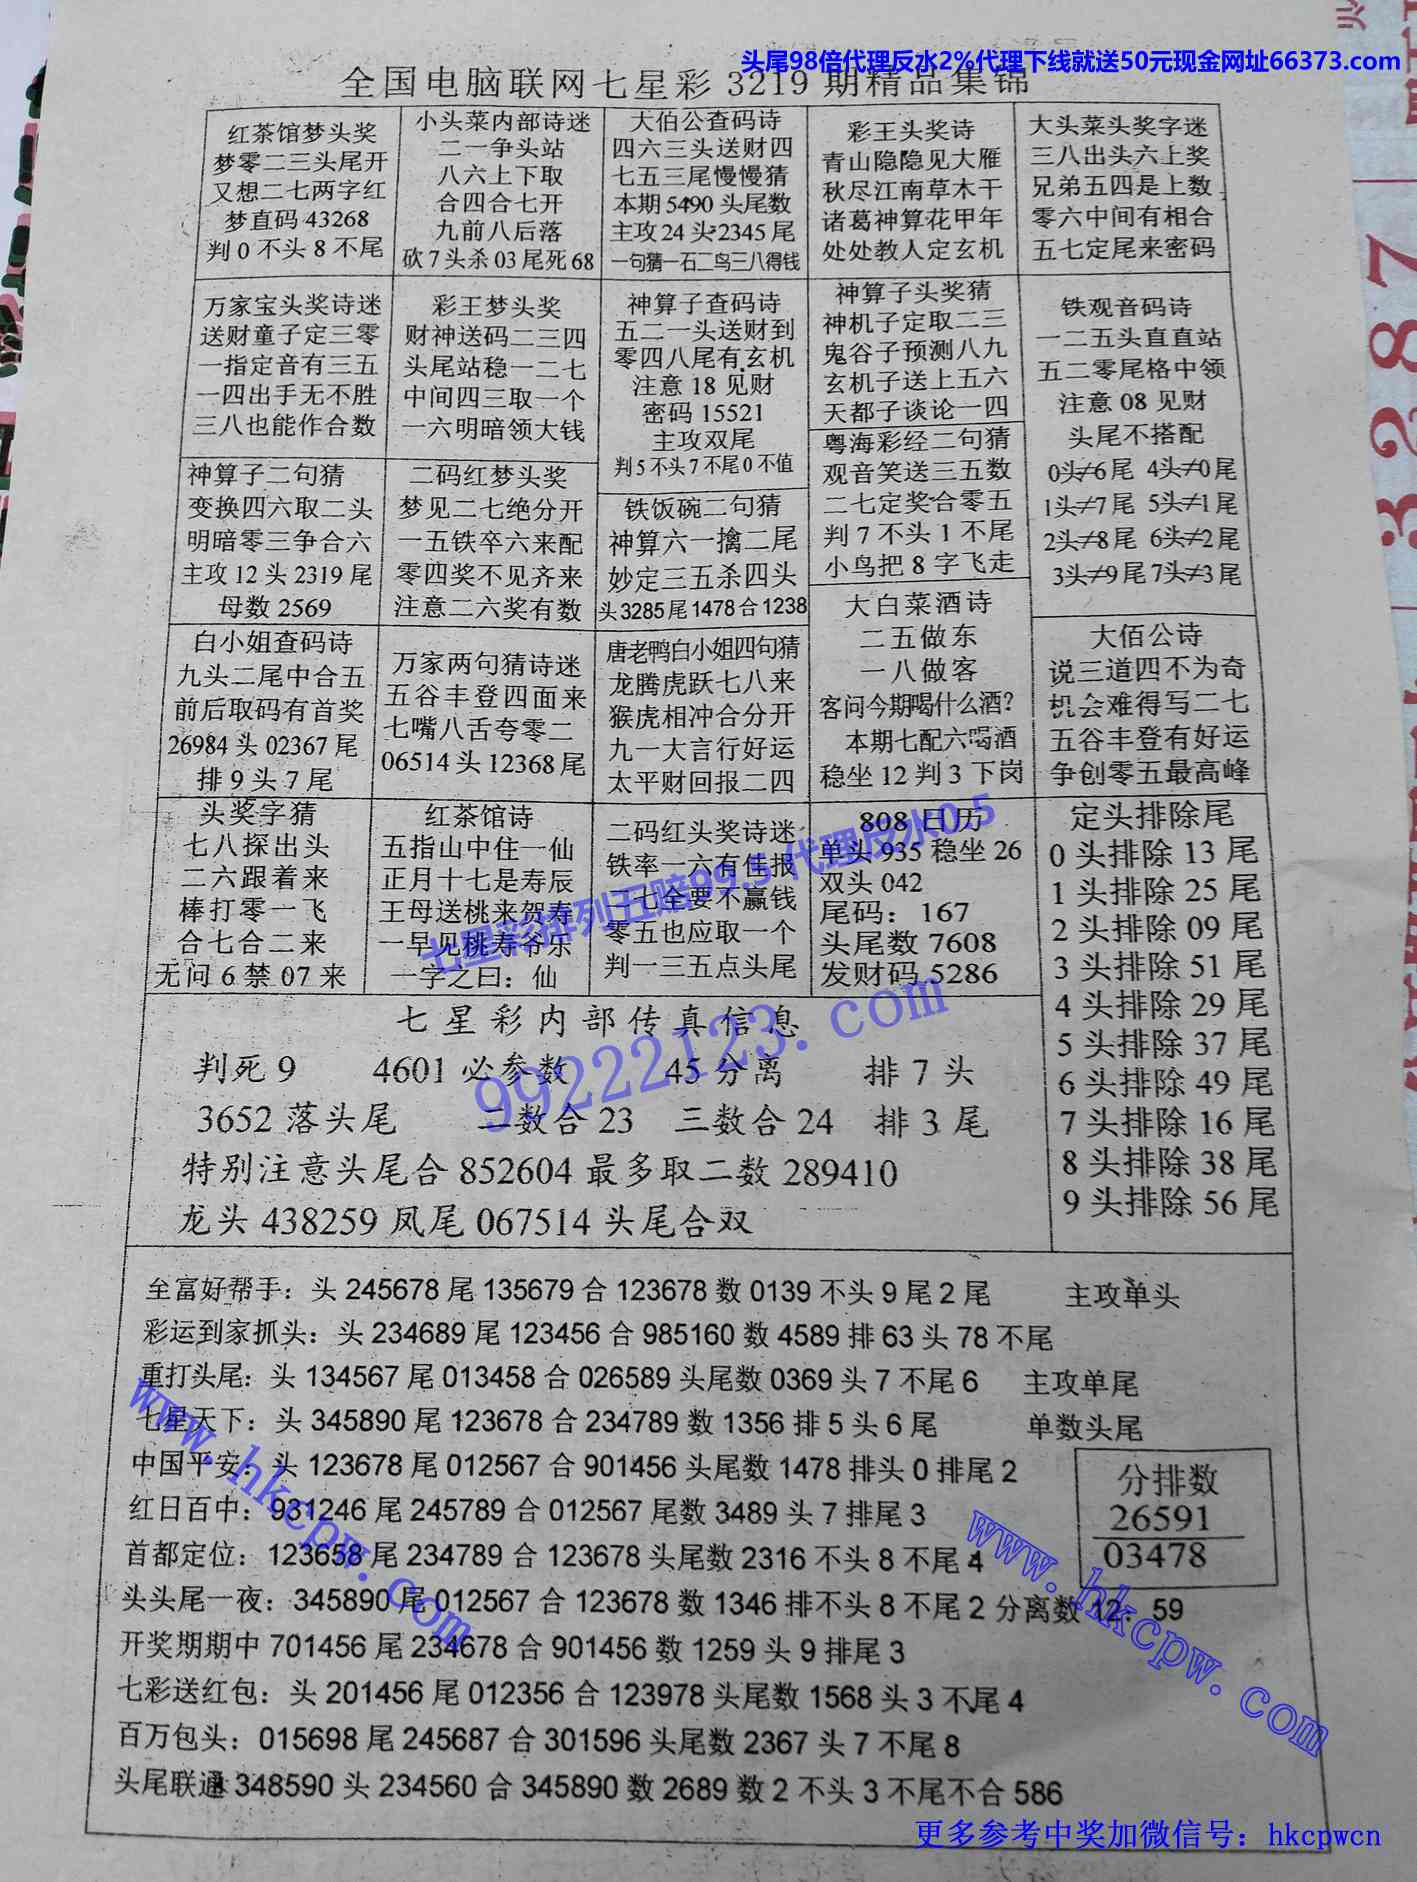 头尾98倍代理反水2%代理下线就送50元现金网址66373.com
全国电脑联网七星彩3219期精品集锦
红茶馆梦头奖
梦零二三头尾开
又想二七两字红
梦直码43268
判0不头8不尾
小头菜内部诗迷
二一争头站
八六上下取
合四合七开
九前八后落
砍7头杀03尾死68
大伯公查码诗
四六三头送财四
七五三尾慢慢猜
本期5490头尾数
主攻24头2345尾
一句猜一石二鸟三八得钱
彩王头奖诗
青山隐隐见大雁
秋尽江南草木干
诸葛神算花甲年
处处教人定玄机
大头菜头奖字迷
三八出头六上奖
兄弟五四是上数
零六中间有相合
五七定尾来密码
万家宝头奖诗迷
送财童子定三零
一指定音有三五
一四出手无不胜
三八也能作合数
彩王梦头奖
财神送码二三四
头尾站稳一二七
中间四三取一个
一六明暗领大钱
神算子查码诗
五二一头送财到
零四八尾有玄机
注意18见财
密码15521
主攻双尾
判5不头7不尾0不值
神算子头奖猜
神机子定取二三
鬼谷子预测八九
玄机子送上五六
天都子谈论一四
铁观音码诗
一二五头直直站
五二零尾格中领
注意08见财
头尾不搭配
0头≠6尾 4头≠0尾
1头≠7尾 5头≠1尾
2头≠8尾 6头≠2尾
3头≠9尾 7头≠3尾
神算子二句猜
变换四六取二头
明暗零三争合六
主攻12头2319尾
母数2569
二码红梦头奖
梦见二七绝分开
一五铁卒六来配
零四奖不见齐来
注意二六奖有数
铁饭碗二句猜
神算六一擒二尾
妙定三五杀四头
头3285尾1478合1238
粤海彩经二句猜
观音笑送三五数
二七定奖合零五
判7不头1不尾
小鸟把8字飞走
白小姐查码诗
九头二尾中合五
前后取码有首奖
26984头02367尾
排9头7尾
万家两句猜诗迷
五谷丰登四面来
七嘴八舌夸零二
06514头12368尾
唐老鸭白小姐四句猜
龙腾虎跃七八来
猴虎相冲合分开
九一大言行好运
太平财回报二四
大白菜酒诗
二五做东
一八做客
客问今期喝什么酒?
本期七配六喝酒
稳坐12判3下岗
大佰公诗
说三道四不为奇
机会难得写二七
五谷丰登有好运
争创零五最高峰
头奖字猜
七八探出头
二六跟着来
棒打零一飞
合七合二来
无问6禁07来
红茶馆诗
五指山中住一仙
正月十七是寿辰
王母送桃来贺寿
一早见桃寿爷乐
一字之曰：仙
二码红头奖诗迷
铁率一六有佳报
二七全要不赢钱
零五也应取一个
判一三五点头尾
808日历
单头935稳坐26
双头042
尾码：167
头尾数7608
发财码5286
定头排除尾
0头排除13尾
1头排除25尾
2头排除09尾
3头排除51尾
4头排除29尾
5头排除37尾
6头排除49尾
7头排除16尾
8头排除38尾
9头排除56尾
七星彩排列五赔99.5代理反水0.5
99222123.com
七星彩内部传真信息
判死9 4601必参数 45分离 排7头
3652落头尾 二数合23 三数合24 排3尾
特别注意头尾合852604最多取二数289410
龙头438259凤尾067514头尾合双
至富好帮手：头245678尾135679合123678数0139不头9尾2尾 主攻单头
彩运到家抓头：头234689尾123456合985160数4589排63头78不尾
重打头尾：头134567尾013458合026589头尾数0369头7不尾6 主攻单尾
七星天下：头345890尾123678合234789数1356排5头6尾 单数头尾
中国平安：头123678尾012567合901456头尾数1478排头0排尾2
红日百中：931246尾245789合012567尾数3489头7排尾3
首都定位：123658尾234789合123678头尾数2316不头8不尾4
头头尾一夜：345890尾012567合123678数1346排不头8不尾2分离数12：59
开奖期期中701456尾234678合901456数1259头9排尾3
七彩送红包：头201456尾012356合123978头尾数1568头3不尾4
百万包头：015698尾245687合301596头尾数2367头7不尾8
头尾联通348590头234560合345890数2689数2不头3不尾不合586
分排数
26591
03478
www.hkcpw.com
www.hkcpw.com
更多参考中奖加微信号：hkcpwcn
3287